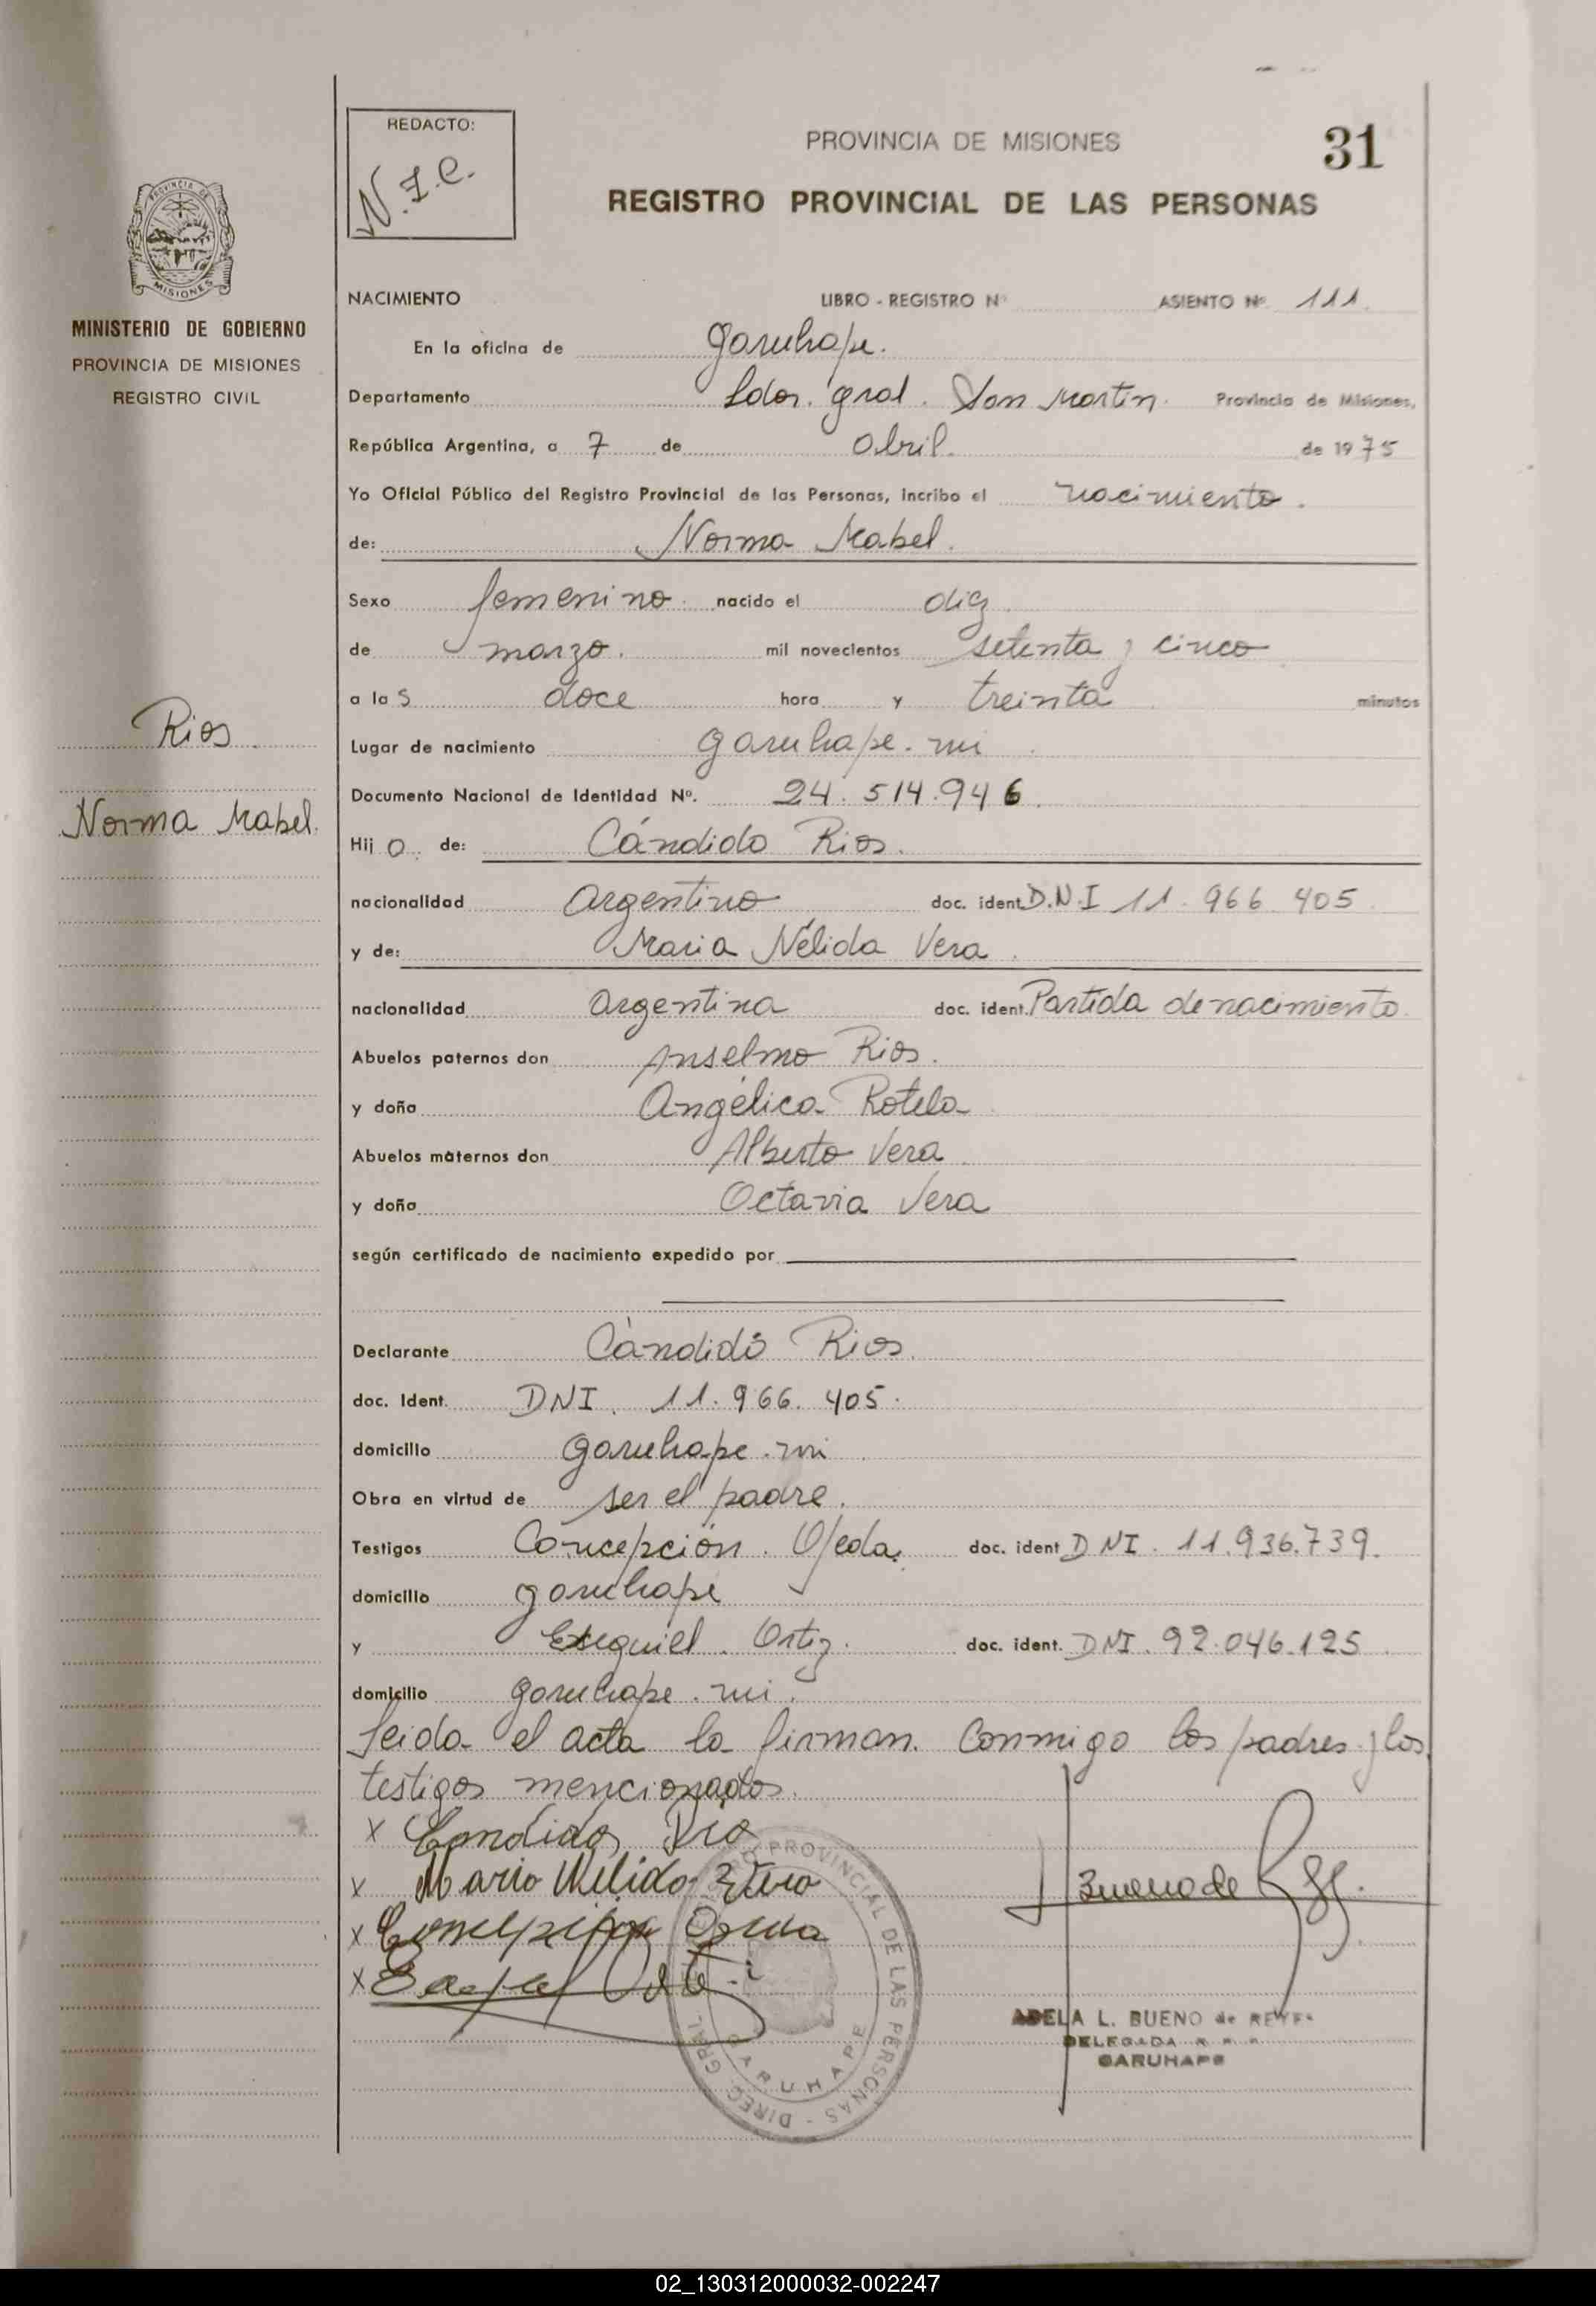 REDACTO:
N.I.C.
PROVINCIA DE MISIONES
31
REGISTRO PROVINCIAL DE LAS PERSONAS
PROVINCIA DE MISIONES
MINISTERIO DE GOBIERNO
PROVINCIA DE MISIONES
REGISTRO CIVIL
Rios
Norma Mabel.
NACIMIENTO LIBRO - REGISTRO Nº ASIENTO Nº 111
En la oficina de Garuhape.
Departamento Ldor. Gral. San Martin. Provincia de Misiones,
República Argentina, a 7 de abril. de 1975
Yo Oficial Público del Registro Provincial de las Personas, incribo el nacimiento.
de: Norma Mabel.
Sexo femenino. nacido el diez
de marzo. mil novecientos setenta y cinco
a las doce hora y treinta minutos
Lugar de nacimiento Garuhape. mi
Documento Nacional de Identidad Nº. 24.514.946
Hijo. de: Cándido Rios.
nacionalidad Argentino doc. ident. D.N.I 11.966.405
y de: Maria Nélida Vera.
nacionalidad Argentina doc. ident. Partida de nacimiento.
Abuelos paternos don Anselmo Rios.
y doña Angélica Rotela
Abuelos maternos don Alberto Vera
y doña Octavia Vera
según certificado de nacimiento expedido por
Declarante Cándido Rios.
doc. Ident. DNI. 11.966.405.
domicilio Garuhape. mi
Obra en virtud de ser el padre.
Testigos Concepción. Ojeda. doc. ident DNI. 11.936.739.
domicilio Garuhape
y Esequiel. Ortiz. doc. ident. DNI. 92.046.125
domicilio Garuhape. mi.
Leida el acta la firman. Conmigo los padres y los
testigos mencionados.
x Candido Rio
x Maria Nelida Vera
x Concepcion Ojeda
x
Bueno de
PROVINCIAL DE LAS PERSONAS - DIREC. GRAL.
GARUHAPE
ADELA L. BUENO de REYES
DELEGADA R. P. P.
GARUHAPE
02_130312000032-002247